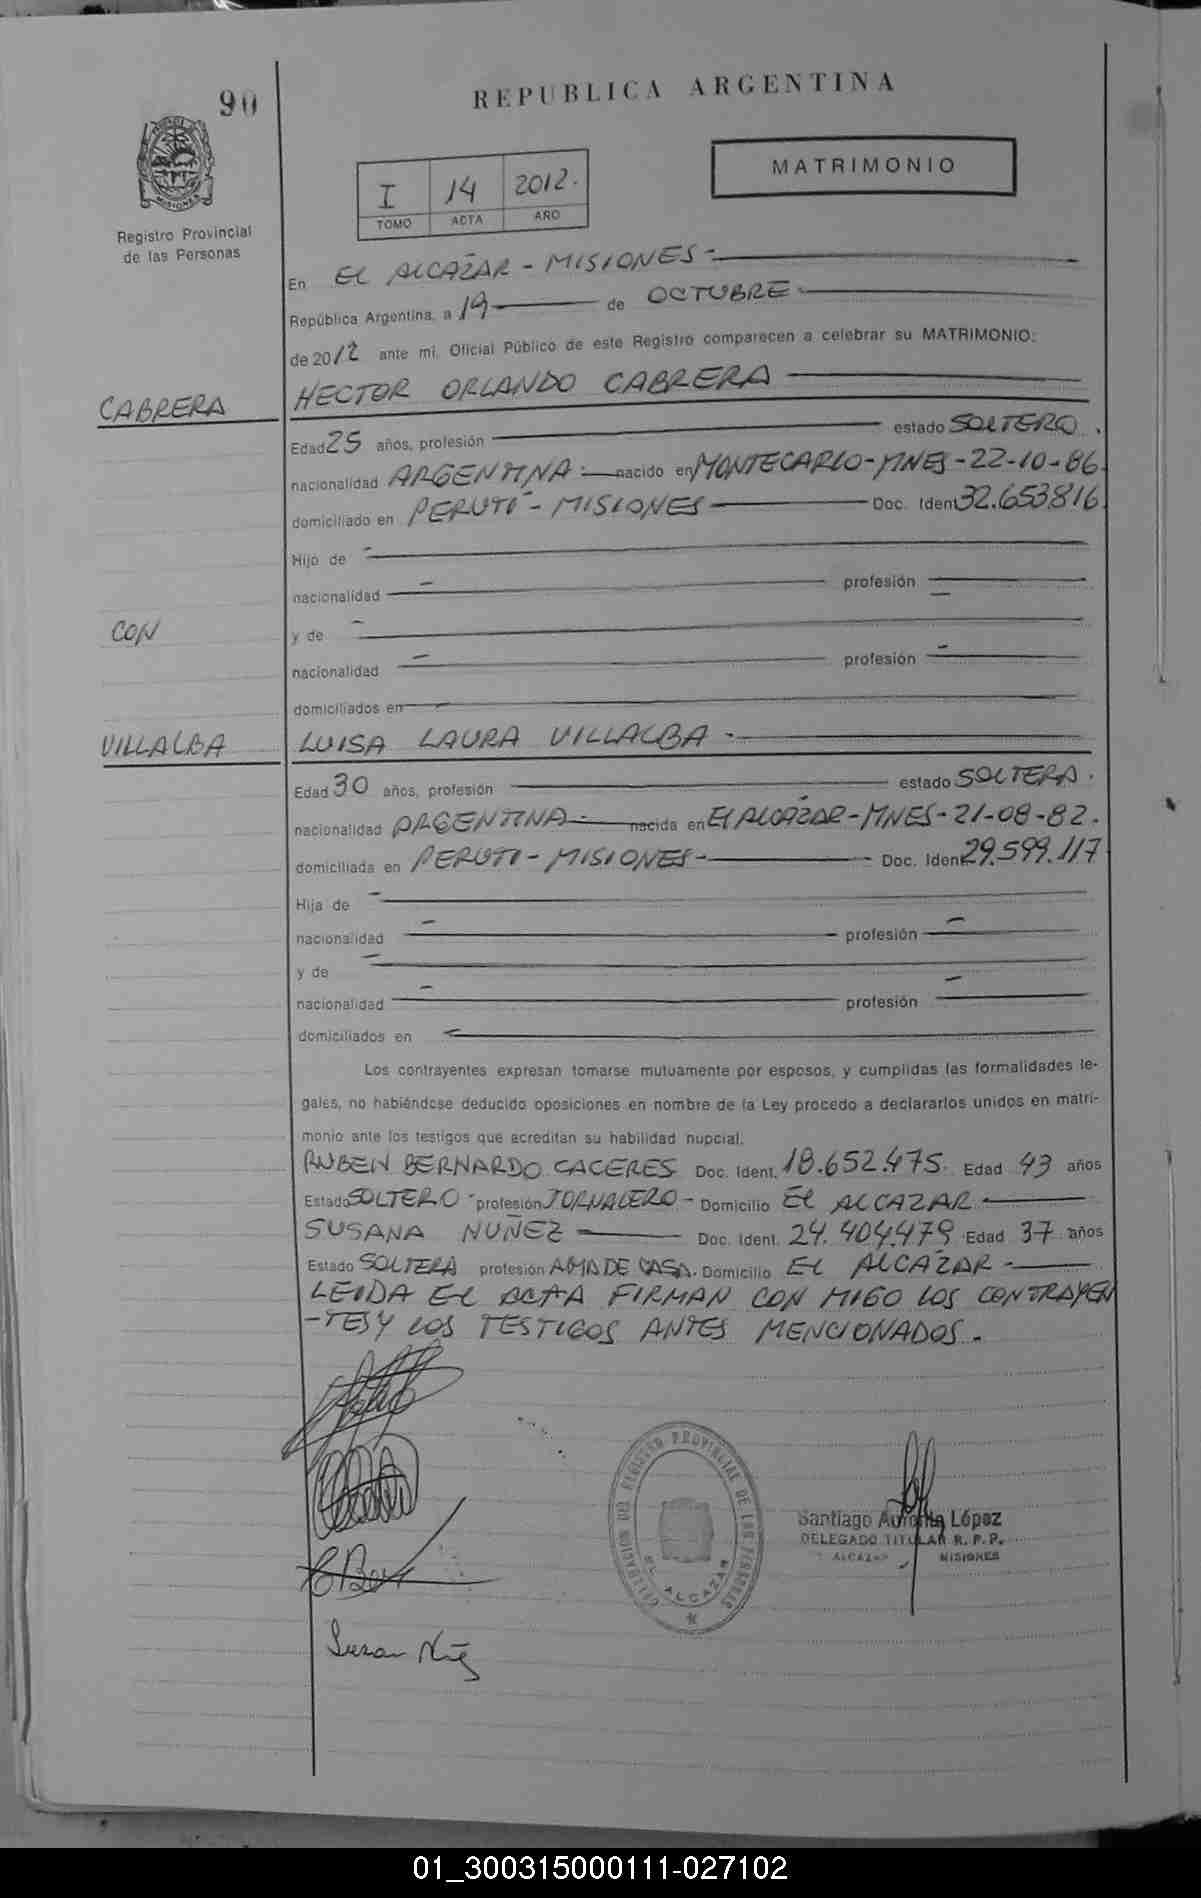 90
REPUBLICA ARGENTINA
MATRIMONIO
I 14 2012.
TOMO ACTA AÑO
Registro Provincial
de las Personas
En EL ALCAZAR - MISIONES -
República Argentina, a 19 de OCTUBRE -
de 2012 ante mi, Oficial Público de este Registro comparecen a celebrar su MATRIMONIO:
CABRERA
HECTOR ORLANDO CABRERA
Edad 25 años, profesión estado SOLTERO.
nacionalidad ARGENTINA - nacido en MONTECARLO-MNES-22-10-86.
domiciliado en PERUTI - MISIONES Doc. Ident 32.653.816
Hijo de -
nacionalidad - profesión -
CON
y de -
nacionalidad - profesión -
domiciliados en -
VILLALBA
LUISA LAURA VILLALBA -
Edad 30 años, profesión estado SOLTERA.
nacionalidad ARGENTINA - nacida en El ALCAZAR-MNES-21-08-82.
domiciliada en PERUTI - MISIONES - Doc. Ident 29.599.117
Hija de -
nacionalidad - profesión -
y de -
nacionalidad - profesión -
domiciliados en -
Los contrayentes expresan tomarse mutuamente por esposos, y cumplidas las formalidades le-
gales, no habiéndose deducido oposiciones en nombre de la Ley procedo a declararlos unidos en matri-
monio ante los testigos que acreditan su habilidad nupcial.
RUBEN BERNARDO CACERES Doc. Ident. 18.652.475. Edad 43 años
Estado SOLTERO - profesión JORNALERO - Domicilio EL ALCAZAR -
SUSANA NUÑEZ Doc. Ident. 24.404.479 Edad 37 años
Estado SOLTERA profesión AMA DE CASA. Domicilio EL ALCAZAR -
LEIDA EL ACTA FIRMAN CON MIGO LOS CONTRAYEN
-TES Y LOS TESTIGOS ANTES MENCIONADOS.
DEL REGISTRO PROVINCIAL DE LAS PERSONAS
EL ALCAZAR
Santiago López
DELEGADO TITULAR R. P. P.
ALCAZAR MISIONES
01_300315000111-027102